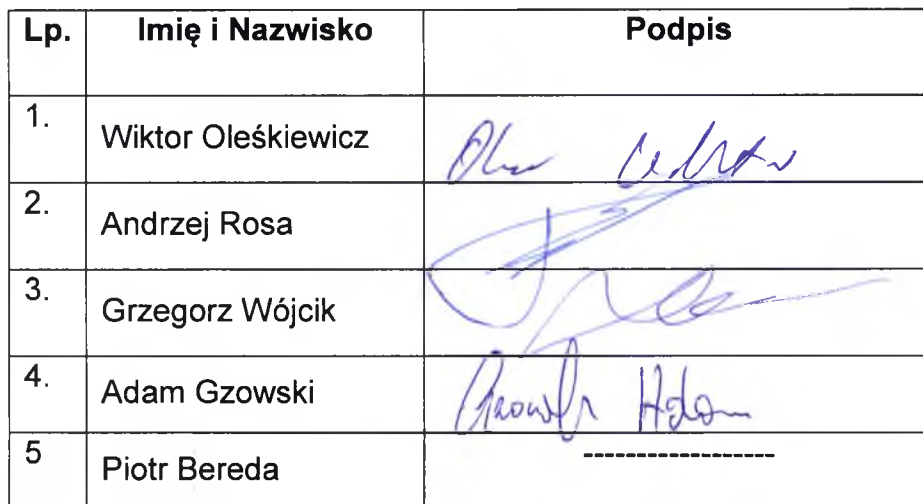 Lp. Imię i Nazwisko Podpis
1. Wiktor Oleśkiewicz
2. Andrzej Rosa
3. Grzegorz Wójcik
4. Adam Gzowski Gzowski Adam
5 Piotr Bereda ------------------